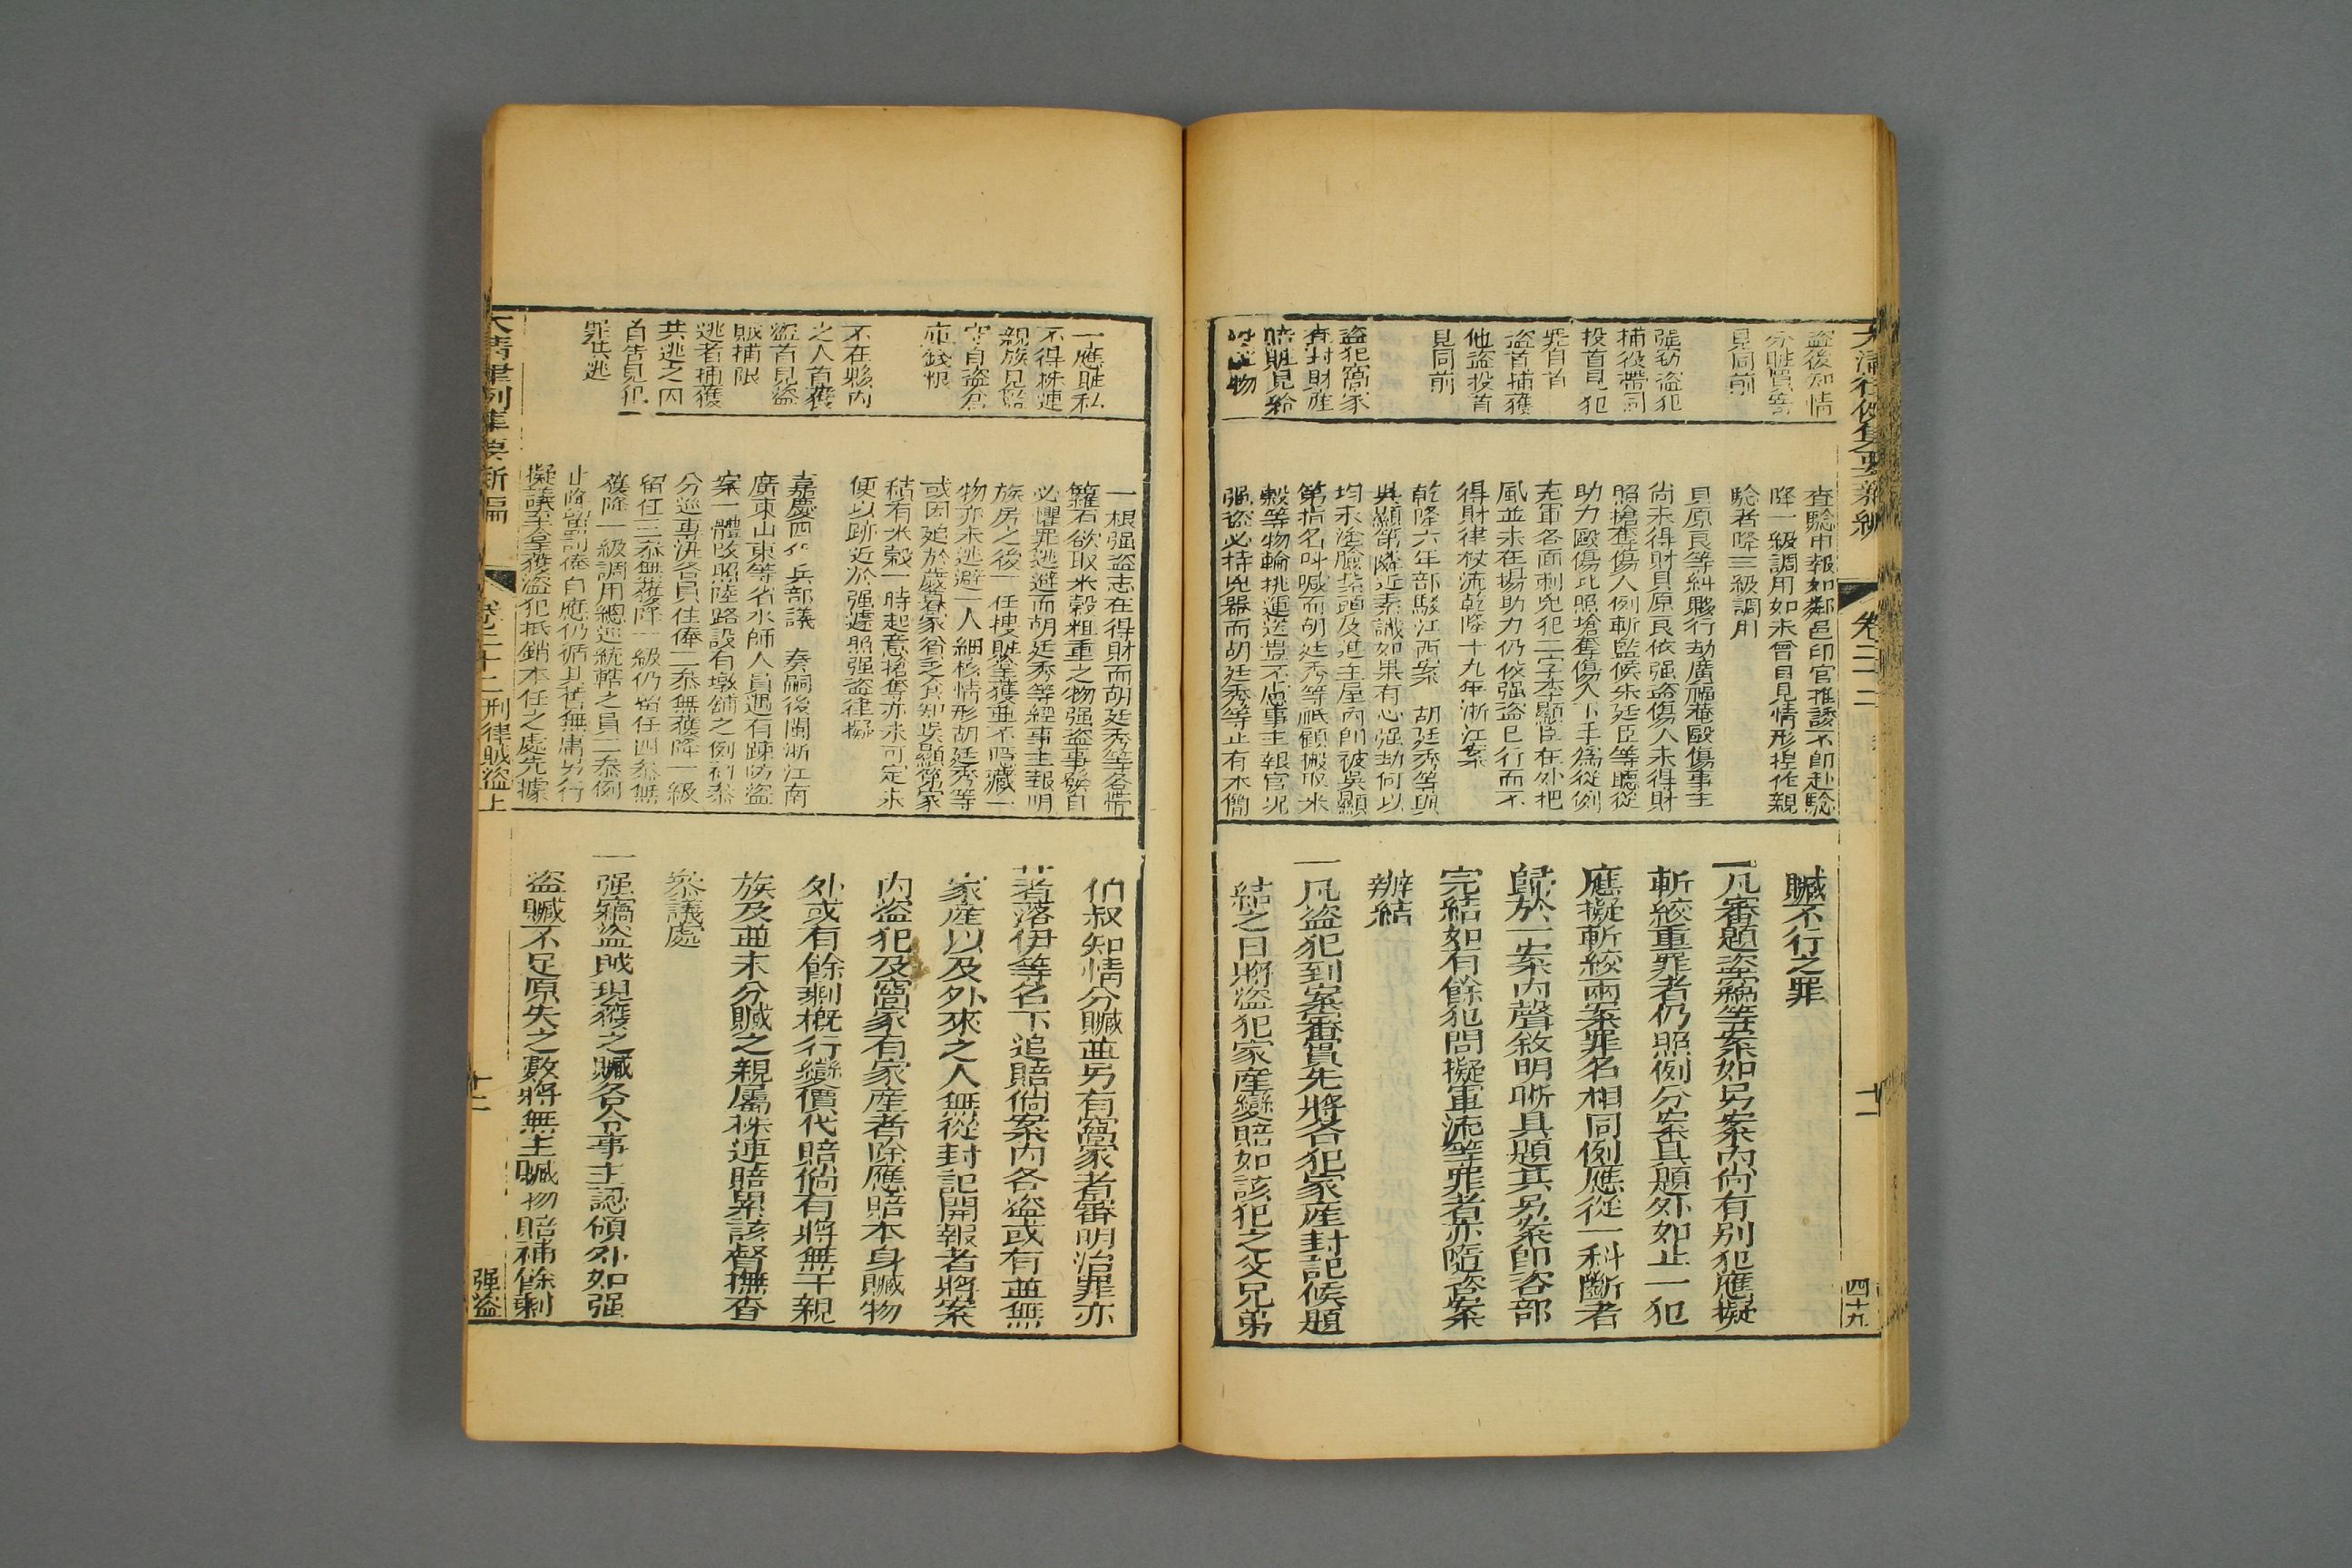 盜後知情
亦賍買寄
見同前
强劫盜犯
捕役帶同
投首見犯
罪自首
盜首捕獲
他盜投首
見同前
盜犯窩家
查封財産
賠賍見給
没賍物
查驗申報如鄰邑印官推諉不卽赴驗
降一級調用如未曾目見情形揑作親
驗者降三級調用
貝原良等糾夥行劫廣福菴毆傷事主
尙未得財貝原良依强盜傷人未得財
照搶奪傷人例斬監候朱廷臣等聽從
助力毆傷比照搶奪傷人下手爲從例
充軍各面刺兇犯二字李顯臣在外把
風並未在塲助力仍依强盜已行而不
得財律杖流乾隆十九年浙江案
乾隆六年部駁江西案 胡廷秀等與
吳顯第隣近素識如果有心强劫何以
均未塗臉紮頭及進主屋內卽被吳顯
第指名叫喊而胡廷秀等祇顧搬取米
穀等物輪挑運送豈不慮事主報官况
强盜必持兇器而胡廷秀等止有木僩
贓不行之罪
一凡審題盜竊等案如另案內尙有別犯應擬
斬絞重罪者仍照例分案具題外如止一犯
應擬斬絞兩案罪名相同例應從一科斷者
歸於一案內聲敘明晰具題其另案卽咨部
完結如有餘犯問擬軍流等罪者亦隨咨案
辦結
一凡盜犯到案審實先將各犯家産封記候題
結之日將盜犯家産變賠如該犯之父兄弟
大淸律例集要新編
卷二十二
十二
四十九
一應賍私
不得株連
親族見監
守自盜倉
庫錢粮
不在夥內
之人首獲
盜首見盜
賊捕限
逃者捕獲
共逃之內
自告見犯
罪共逃
一根强盜志在得財而胡廷秀等各帶
籮石欲取米穀粗重之物强盜事發自
必懼罪逃避而胡廷秀等經事主報明
族房之後一任搜賍全獲並不隱藏一
物亦未逃避一人細核情形胡廷秀等
或因迫於歲暮家貧乏食知吳顯第家
積有米穀一時起意搶奪亦未可定未
便以跡近於强遽照强盜律擬
嘉慶四年兵部議 奏嗣後閩浙江南
廣東山東等省水師人員遇有疎防盜
案一體改照陸路設有墩舖之例初叅
分巡專汛各員住俸二叅無獲降一級
留任三叅無獲降一級仍留任四叅無
獲降一級調用總巡統轄之員二叅例
止降留罰俸自應仍循其舊無庸另行
擬議至拿獲盜犯抵銷本任之處先據
伯叔知情分贓並另有窩家者審明治罪亦
著落伊等名下追賠倘案內各盜或有並無
家産以及外來之人無從封記開報者將案
內盜犯及窩家有家産者除應賠本身贓物
外或有餘剩概行變價代賠倘有將無干親
族及並未分贓之親屬株連賠累該督撫查
叅議處
一强竊盜賊現獲之贓各令事主認領外如强
盜贓不足原失之數將無主贓物賠補餘剩
大淸律例集要新編
卷二十二刑律賊盜上
十二
强盜